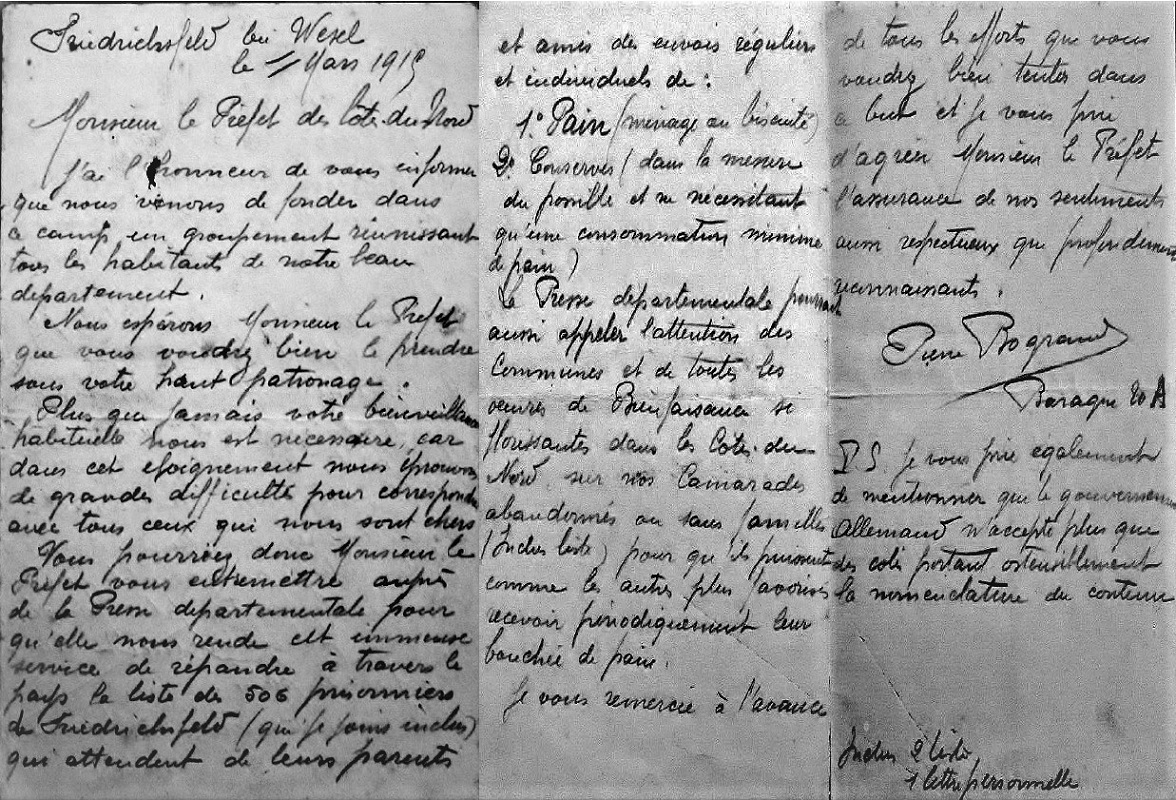 Friedrichsfeld bei Wesel
le 11 Mars 1915
Monsieur le Préfet des Côtes-du-Nord
J'ai l'honneur de vous informer
que nous venons de fonder dans
ce camp un groupement réunissant
tous les habitants de notre beau
département.
Nous espérons Monsieur le Préfet
que vous voudrez bien le prendre
sous votre haut patronage.
Plus que jamais votre bienveillance
habituelle nous est nécessaire, car
dans cet éloignement nous éprouvons
de grandes difficultés pour correspondre
avec tous ceux qui nous sont chers
Vous pourriez donc Monsieur le
Préfet vous entremettre auprès
de la Presse départementale pour
qu'elle nous rende cet immense
service de répandre à travers le
pays la liste des 506 prisonniers
de Friedrichsfeld (que je joins inclus)
qui attendent de leurs parents
et amis des envois réguliers
et individuels de :
1° Pain (ménage ou biscuité)
2° Conserves (dans la mesure
du possible et ne nécessitant
qu'une consommation minime
de pain)
La Presse départementale pourrait
aussi appeler l'attention des
Communes et de toutes les
oeuvres de Bienfaisance si
florissantes dans les Côtes-du-
Nord, sur nos Camarades
abandonnés ou sans familles
(Inclus liste) pour qu'ils puissent
comme les autres plus favorisés
recevoir périodiquement leur
bouchée de pain.
Je vous remercie à l'avance
de tous les efforts que vous
voudrez bien tenter dans
ce but et je vous prie
d'agréer Monsieur le Préfet
l'assurance de nos sentiments
aussi respectueux que profondément
reconnaissants.
Pierre Bograud
Baraque 20 A
P.S. Je vous prie également
de mentionner que le gouvernement
Allemand n'accepte plus que
des colis portant ostensiblement
la nomenclature du contenu
Inclus 2 listes
1 lettre personnelle